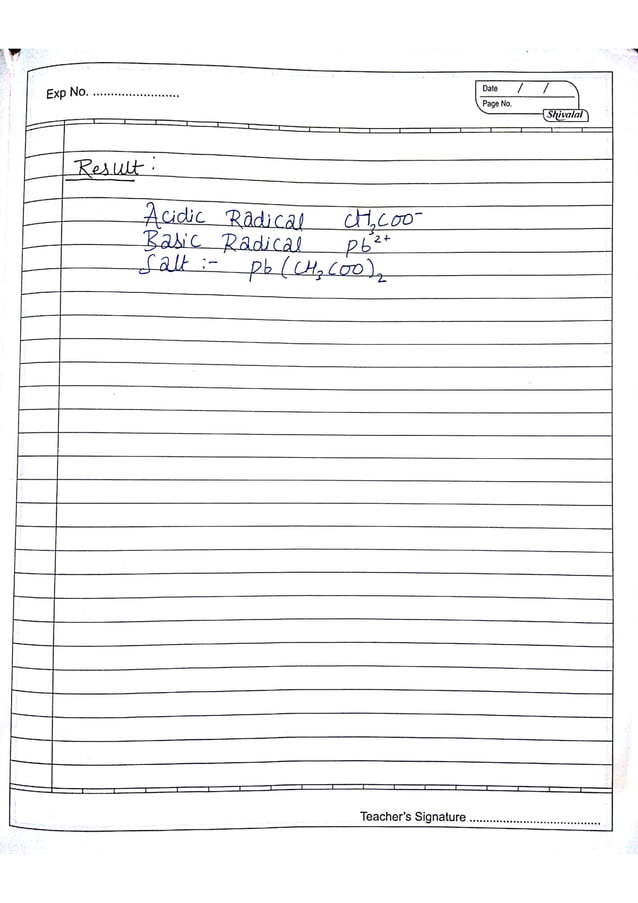 Exp No. ........................
Date / /
Page No.
Shivalal
Result :
Acidic Radical CH₃COO⁻
Basic Radical Pb²⁺
Salt :- Pb(CH₃COO)₂
Teacher's Signature .....................................